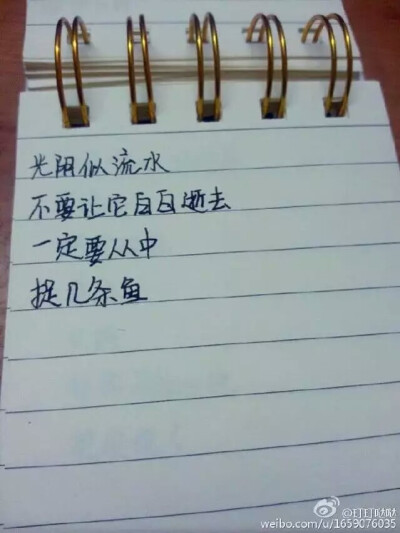 光阴似流水
不要让它白白逝去
一定要从中
捉几条鱼
weibo.com/u/1659076035